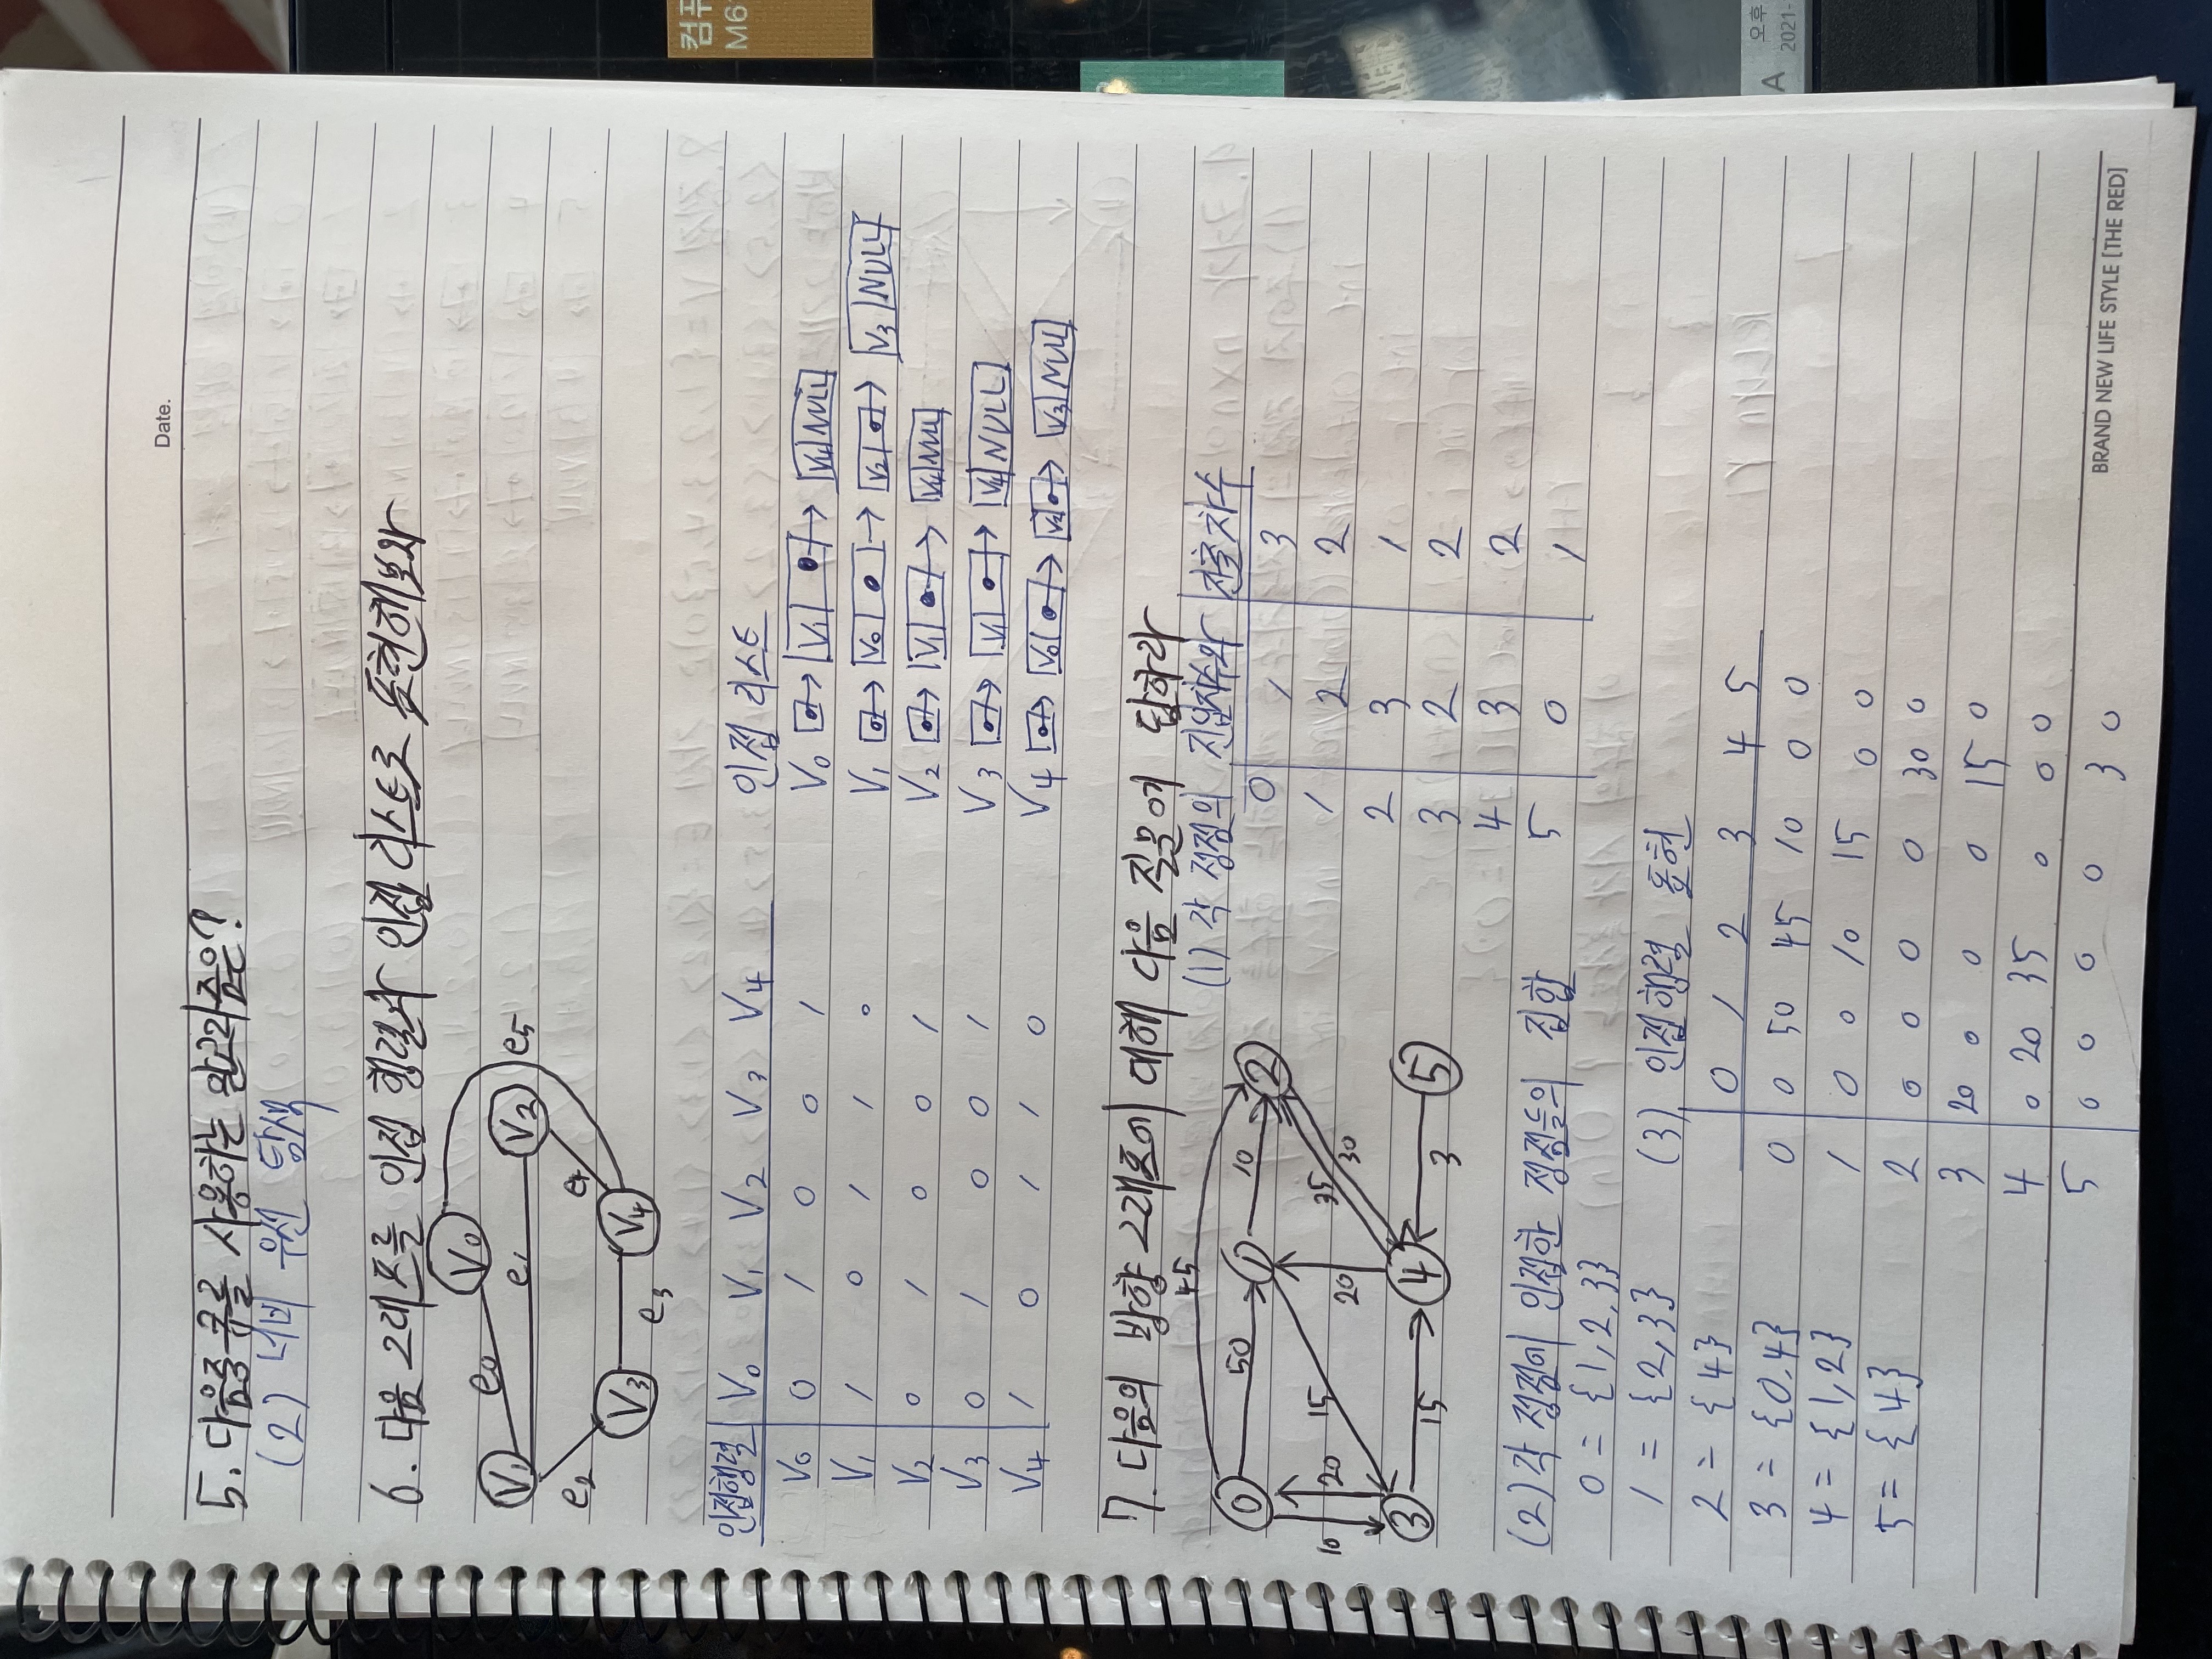 Date.
5. 다음중 큐를 사용하는 알고리즘은?
(2) 너비 우선 탐색
6. 다음 그래프를 인접 행렬과 인접 리스트로 표현해보라
V0
e0
V1
e1
V2
e5
e2
e4
V3
V4
e3
인접행렬 V0 V1 V2 V3 V4
V0 0 1 0 0 1
V1 1 0 1 1 0
V2 0 1 0 0 1
V3 0 1 0 0 1
V4 1 0 1 1 0
인접 리스트
V0 → V1 → V4 NULL
V1 → V0 → V2 → V3 NULL
V2 → V1 → V4 NULL
V3 → V1 → V4 NULL
V4 → V0 → V2 → V3 NULL
7. 다음의 방향 그래프에 대해 다음 질문에 답하라
45
0 50 1 10 2
10 20 15 20 35 30
3 15 4 3 5
(1) 각 정점의 진입차수와 진출차수
0 1 3
1 2 2
2 3 1
3 2 2
4 3 2
5 0 1
(2) 각 정점에 인접한 정점들의 집합
0 = {1,2,3}
1 = {2,3}
2 = {4}
3 = {0,4}
4 = {1,2}
5 = {4}
(3) 인접행렬 표현
0 1 2 3 4 5
0 0 50 45 10 0 0
1 0 0 10 15 0 0
2 0 0 0 0 30 0
3 20 0 0 0 15 0
4 0 20 35 0 0 0
5 0 0 0 0 3 0
BRAND NEW LIFE STYLE [THE RED]
컴퓨
M6
A 오후
2021-